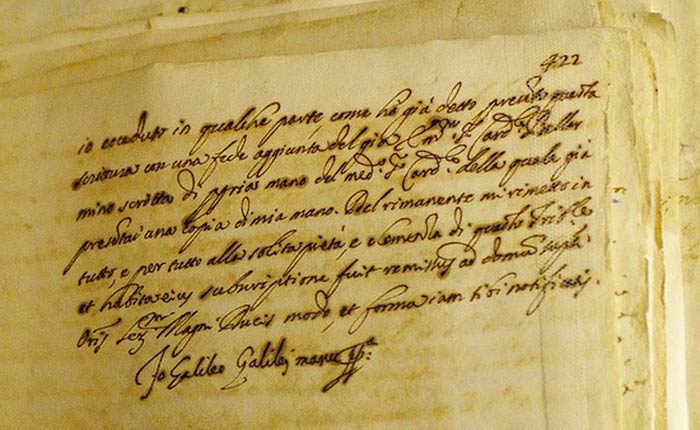 422
io ecceduto in qualche parte come ho già detto presento questa
scrittura con una fede aggiunta del già Emmo Sr Cardle Bellar
mino scritta di propria mano del medo Sr Cardle della quale già
presentai una copia di mia mano. Del rimanente mi rimetto in
tutto, e per tutto alla solita pietà, e clemenza di questo Trible
et habita eius subscriptione fuit remissus ad domum supti
Oris Sermi Magni Ducis modo, et forma iam sibi notificatis.
Io Galileo Galilej manu ppa